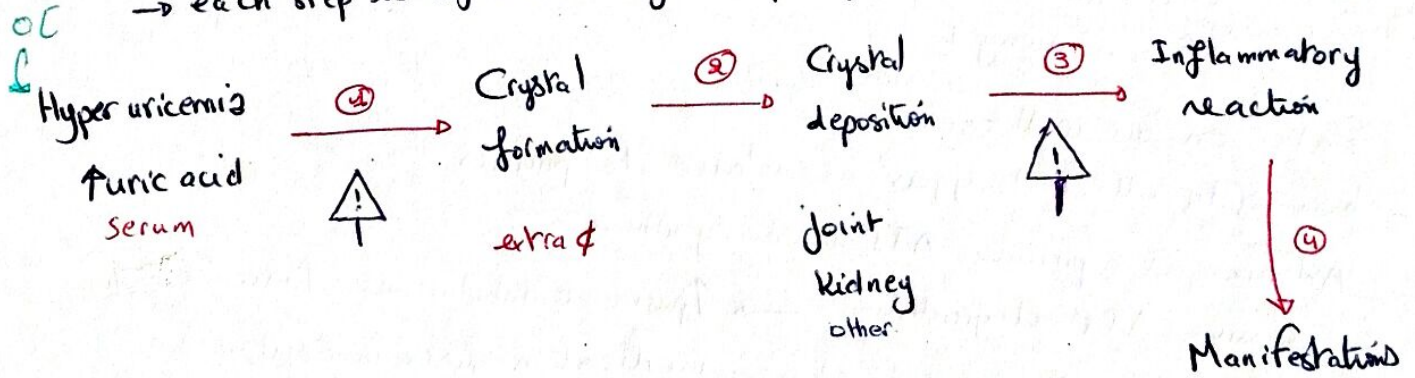 → each step
OC
Hyperuricemia
↑uric acid
Serum
①
!
Crystal
formation
extra ¢
②
Crystal
deposition
joint
kidney
other
③
!
Inflammatory
reaction
④
Manifestations